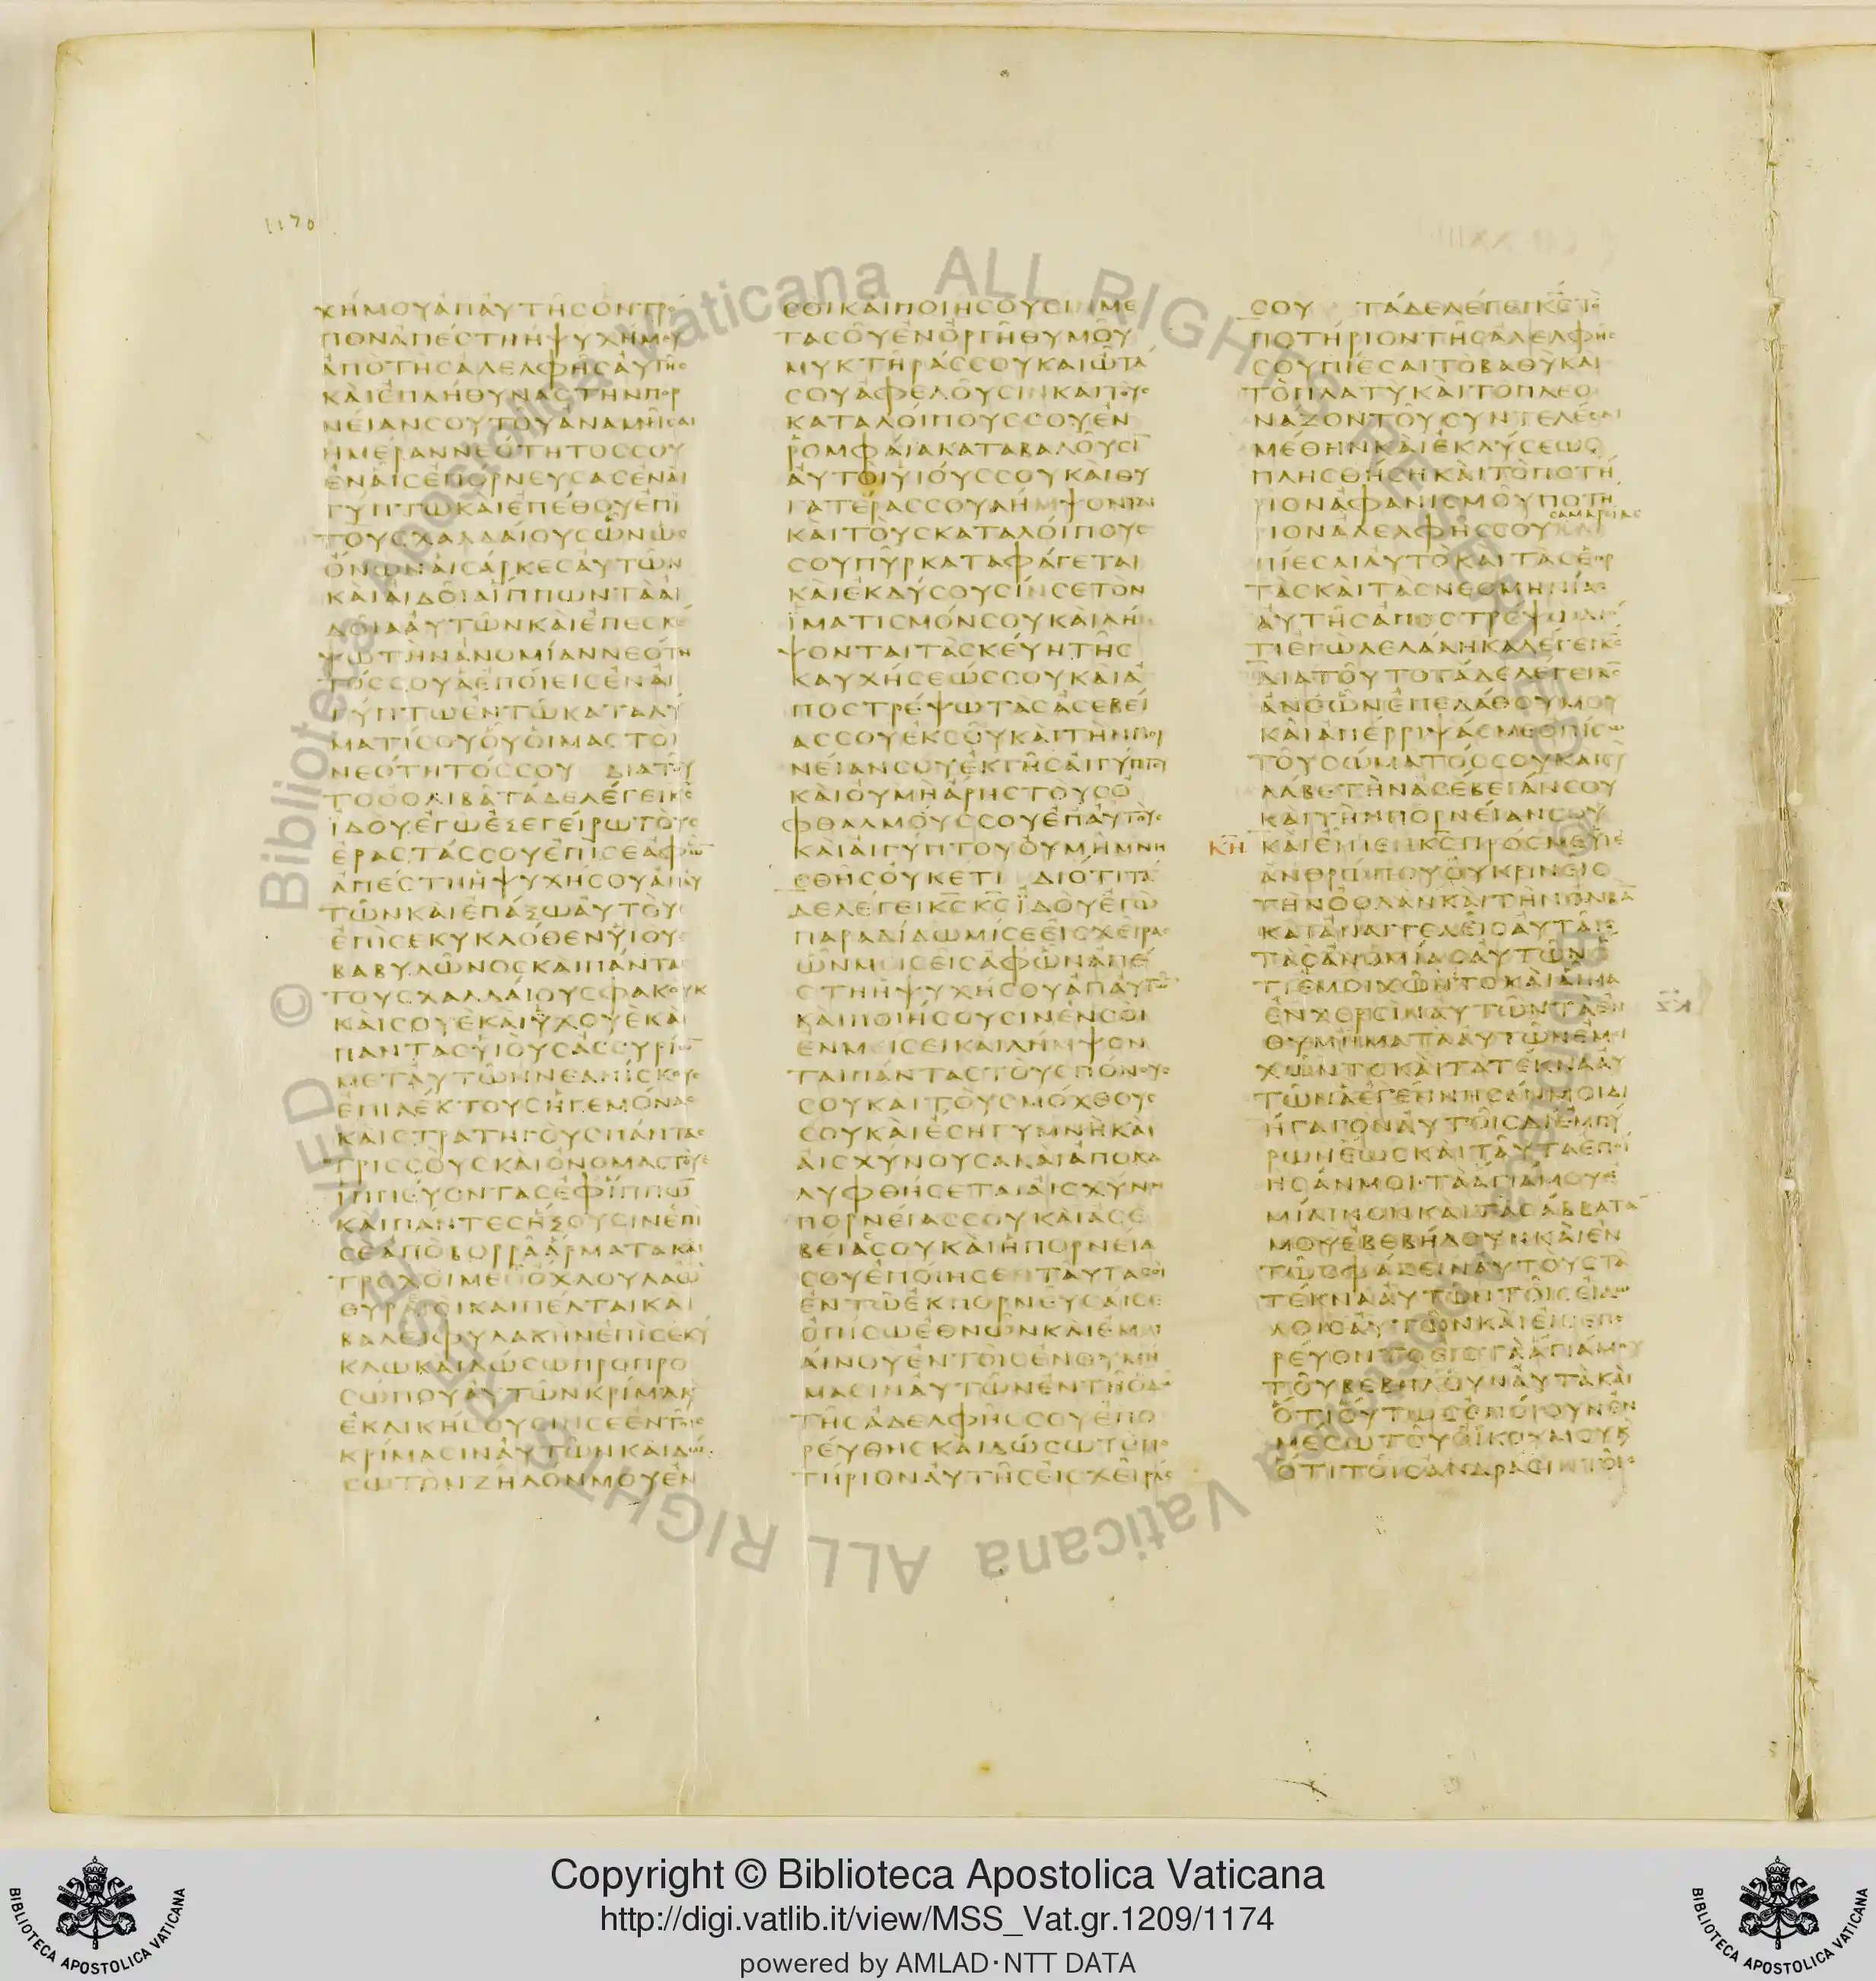 1170
ΧΗΜΟΥΑΠΑΥΤΗΣΟΝΤΡΟ
ΠΟΝΑΠΕΣΤΗΗΨΥΧΗΜΟΥ
ΑΠΟΤΗΣΑΔΕΛΦΗΣΑΥΤΗΣ
ΚΑΙΕΠΛΗΘΥΝΑΣΤΗΝΠΟΡ
ΝΕΙΑΝΣΟΥΤΟΥΑΝΑΜΝΗΣΑΙ
ΗΜΕΡΑΝΝΕΟΤΗΤΟΣΣΟΥ
ΕΝΑΙΣΕΠΟΡΝΕΥΣΑΣΕΝΑΙ
ΓΥΠΤΩΚΑΙΕΠΕΘΟΥΕΠΙ
ΤΟΥΣΧΑΛΔΑΙΟΥΣΩΝΩΣ
ΟΝΩΝΑΙΣΑΡΚΕΣΑΥΤΩΝ
ΚΑΙΑΙΔΟΙΑΪΠΠΩΝΤΑΑΙ
ΔΟΙΑΑΥΤΩΝΚΑΙΕΠΕΣΚΕ
ΨΩΤΗΝΑΝΟΜΙΑΝΝΕΟΤΗ
ΤΟΣΣΟΥΑΕΠΟΙΕΙΣΕΝΑΙ
ΓΥΠΤΩΕΝΤΩΚΑΤΑΛΥ
ΜΑΤΙΣΟΥΟΥΟΙΜΑΣΤΟΙ
ΝΕΟΤΗΤΟΣΣΟΥ ΔΙΑΤΟΥ
ΤΟΟΟΛΙΒΑΤΑΔΕΛΕΓΕΙΚΣ
ΪΔΟΥΕΓΩΕΞΕΓΕΙΡΩΤΟΥΣ
ΕΡΑΣΤΑΣΣΟΥΕΠΙΣΕΑΦΩ̅
ΑΠΕΣΤΗΗΨΥΧΗΣΟΥΑΠΑΥ
ΤΩΝΚΑΙΕΠΑΞΩΑΥΤΟΥΣ
ΕΠΙΣΕΚΥΚΛΟΘΕΝΥΙΟΥΣ
ΒΑΒΥΛΩΝΟΣΚΑΙΠΑΝΤΑΣ
ΤΟΥΣΧΑΛΔΑΙΟΥΣΦΑΚΟΥΚ
ΚΑΙΣΟΥΕΚΑΙΥΧΟΥΕΚΑΙ
ΠΑΝΤΑΣΥΙΟΥΣΑΣΣΥΡΙΩ̅
ΜΕΤΑΥΤΩΝΝΕΑΝΙΣΚΟΥΣ
ΕΠΙΛΕΚΤΟΥΣΗΓΕΜΟΝΑΣ
ΚΑΙΣΤΡΑΤΗΓΟΥΣΠΑΝΤΑΣ
ΤΡΙΣΣΟΥΣΚΑΙΟΝΟΜΑΣΤΟΥΣ
ΪΠΠΕΥΟΝΤΑΣΕΦΪΠΠΩ̅
ΚΑΙΠΑΝΤΕΣΗΞΟΥΣΙΝΕΠΙ
ΣΕΑΠΟΒΟΡΡΑΑΡΜΑΤΑΚΑΙ
ΤΡΟΧΟΙΜΕΤΟΧΛΟΥΛΑΩ̅
ΘΥΡΕΟΙΚΑΙΠΕΛΤΑΙΚΑΙ
ΒΑΛΕΙΦΥΛΑΚΗΝΕΠΙΣΕΚΥ
ΚΛΩΚΑΙΔΩΣΩΠΡΟΠΡΟ
ΣΩΠΟΥΑΥΤΩΝΚΡΙΜΑΚ
ΕΚΔΙΚΗΣΟΥΣΙΝΣΕΕΝΤΟΙΣ
ΚΡΙΜΑΣΙΝΑΥΤΩΝΚΑΙΔΩ
ΣΩΤΟΝΖΗΛΟΝΜΟΥΕΝ
ΣΟΙΚΑΙΠΟΙΗΣΟΥΣΙΝΜΕ
ΤΑΣΟΥΕΝΟΡΓΗΘΥΜΟΥ
ΜΥΚΤΗΡΑΣΣΟΥΚΑΙΩΤΑ
ΣΟΥΑΦΕΛΟΥΣΙΝΚΑΙΤΟΥΣ
ΚΑΤΑΛΟΙΠΟΥΣΣΟΥΕΝ
ΡΟΜΦΑΙΑΚΑΤΑΒΑΛΟΥΣΙ̅
ΑΥΤΟΙΥΙΟΥΣΣΟΥΚΑΙΘΥ
ΓΑΤΕΡΑΣΣΟΥΛΗΜΨΟΝΤΑΙ
ΚΑΙΤΟΥΣΚΑΤΑΛΟΙΠΟΥΣ
ΣΟΥΠΥΡΚΑΤΑΦΑΓΕΤΑΙ
ΚΑΙΕΚΔΥΣΟΥΣΙΝΣΕΤΟΝ
ΪΜΑΤΙΣΜΟΝΣΟΥΚΑΙΛΗ
ΨΟΝΤΑΙΤΑΣΚΕΥΗΤΗΣ
ΚΑΥΧΗΣΕΩΣΣΟΥΚΑΙΑ
ΠΟΣΤΡΕΨΩΤΑΣΑΣΕΒΕΙ
ΑΣΣΟΥΕΚΣΟΥΚΑΙΤΗΝΠΟΡ
ΝΕΙΑΝΣΟΥΕΚΓΗΣΑΙΓΥΠΤΟΥ
ΚΑΙΟΥΜΗΑΡΗΣΤΟΥΣΟ
ΦΘΑΛΜΟΥΣΣΟΥΕΠΑΥΤΟΥΣ
ΚΑΙΑΙΓΥΠΤΟΥΟΥΜΗΜΝΗ
ΣΘΗΣΟΥΚΕΤΙ ΔΙΟΤΙΤΑ
ΔΕΛΕΓΕΙΚΣΚΣΪΔΟΥΕΓΩ
ΠΑΡΑΔΙΔΩΜΙΣΕΕΙΣΧΕΙΡΑΣ
ΩΝΜΕΙΣΕΙΣΑΦΩΝΑΠΕ
ΣΤΗΗΨΥΧΗΣΟΥΑΠΑΥΤΩ̅
ΚΑΙΠΟΙΗΣΟΥΣΙΝΕΝΣΟΙ
ΕΝΜΕΙΣΕΙΚΑΙΛΗΜΨΟΝ
ΤΑΙΠΑΝΤΑΣΤΟΥΣΠΟΝΟΥΣ
ΣΟΥΚΑΙΤΟΥΣΜΟΧΘΟΥΣ
ΣΟΥΚΑΙΕΣΗΓΥΜΝΗΚΑΙ
ΑΙΣΧΥΝΟΥΣΑΚΑΙΑΠΟΚΑ
ΛΥΦΘΗΣΕΤΑΙΑΙΣΧΥΝΗ
ΠΟΡΝΕΙΑΣΣΟΥΚΑΙΑΣΕ
ΒΕΙΑΣΟΥΚΑΙΗΠΟΡΝΕΙΑ
ΣΟΥΕΠΟΙΗΣΕΝΤΑΥΤΑΣΟΙ
ΕΝΤΩΕΚΠΟΡΝΕΥΣΑΙΣΕ
ΟΠΙΣΩΕΘΝΩΝΚΑΙΕΜΙ
ΑΙΝΟΥΕΝΤΟΙΣΕΝΘΥΜΗ
ΜΑΣΙΝΑΥΤΩΝΕΝΤΗΟΔΩ
ΤΗΣΑΔΕΛΦΗΣΣΟΥΕΠΟ
ΡΕΥΘΗΣΚΑΙΔΩΣΩΤΟΠΟ
ΤΗΡΙΟΝΑΥΤΗΣΕΙΣΧΕΙΡΑΣ
ΣΟΥ ΤΑΔΕΛΕΓΕΙΚΣΤΟ
ΠΟΤΗΡΙΟΝΤΗΣΑΔΕΛΦΗΣ
ΣΟΥΠΙΕΣΑΙΤΟΒΑΘΥΚΑΙ
ΤΟΠΛΑΤΥΚΑΙΤΟΠΛΕΟ
ΝΑΖΟΝΤΟΥΣΥΝΤΕΛΕΣΑΙ
ΜΕΘΗΝΚΑΙΕΚΛΥΣΕΩΣ
ΠΛΗΣΘΗΣΗΚΑΙΤΟΠΟΤΗ
ΡΙΟΝΑΦΑΝΙΣΜΟΥΠΟΤΗ
ΣΑΜΑΡΕΙΑΣ
ΡΙΟΝΑΔΕΛΦΗΣΣΟΥΚΑΙ
ΠΙΕΣΑΙΑΥΤΟΚΑΙΤΑΣΕΟΡ
ΤΑΣΚΑΙΤΑΣΝΕΟΜΗΝΙΑΣ
ΑΥΤΗΣΑΠΟΣΤΡΕΨΩΔΙΟ
ΤΙΕΓΩΛΕΛΑΛΗΚΑΛΕΓΕΙΚΣ
ΔΙΑΤΟΥΤΟΤΑΔΕΛΕΓΕΙΚΣ
ΑΝΘΩΝΕΠΕΛΑΘΟΥΜΟΥ
ΚΑΙΑΠΕΡΡΙΨΑΣΜΕΟΠΙΣΩ
ΤΟΥΣΩΜΑΤΟΣΣΟΥΚΑΙΣΥ
ΛΑΒΕΤΗΝΑΣΕΒΕΙΑΝΣΟΥ
ΚΑΙΤΗΝΠΟΡΝΕΙΑΝΣΟΥ
ΚΗ ΚΑΙΕΙΠΕΝΚΣΠΡΟΣΜΕΥΙΕ
ΑΝΘΡΩΠΟΥΟΥΚΡΙΝΕΙΣ
ΤΗΝΟΟΛΑΝΚΑΙΤΗΝΟΛΙΒΑ̅
ΚΑΙΑΠΑΓΓΕΛΕΙΣΑΥΤΑΙΣ
ΤΑΣΑΝΟΜΙΑΣΑΥΤΩΝΟ
ΤΙΕΜΟΙΧΩΝΤΟΚΑΙΑΙΜΑ
ΕΝΧΕΡΣΙΝΑΥΤΩΝΤΑΕΝ
ΘΥΜΗΜΑΤΑΑΥΤΩΝΕΜΟΙ
ΧΩΝΤΟΚΑΙΤΑΤΕΚΝΑΑΥ
ΤΩΝΑΕΓΕΝΝΗΣΑΝΜΟΙΔΙ
ΗΓΑΓΟΝΑΥΤΟΙΣΔΙΕΜΠΥ
ΡΩΝΕΩΣΚΑΙΤΑΥΤΑΕΠΟΙ
ΗΣΑΝΜΟΙ·ΤΑΑΓΙΑΜΟΥΕ
ΜΙΑΙΝΟΝΚΑΙΤΑΣΑΒΒΑΤΑ
ΜΟΥΕΒΕΒΗΛΟΥΝΚΑΙΕΝ
ΤΩΣΦΑΖΕΙΝΑΥΤΟΥΣΤΑ
ΤΕΚΝΑΑΥΤΩΝΤΟΙΣΕΙΔΩ
ΛΟΙΣΑΥΤΩΝΚΑΙΕΙΣΕΠΟ
ΡΕΥΟΝΤΟΕΙΣΤΑΑΓΙΑΜΟΥ
ΤΟΥΒΕΒΗΛΟΥΝΑΥΤΑΚΑΙ
ΟΤΙΟΥΤΩΣΕΠΟΙΟΥΝΕΝ
ΜΕΣΩΤΟΥΟΙΚΟΥΜΟΥΚ
ΟΤΙΤΟΙΣΑΝΔΡΑΣΙΝΤΟΙΣ
© Biblioteca Apostolica Vaticana ALL RIGHTS RESERVED
Copyright © Biblioteca Apostolica Vaticana
http://digi.vatlib.it/view/MSS_Vat.gr.1209/1174
powered by AMLAD·NTT DATA
BIBLIOTECA APOSTOLICA VATICANA
BIBLIOTECA APOSTOLICA VATICANA